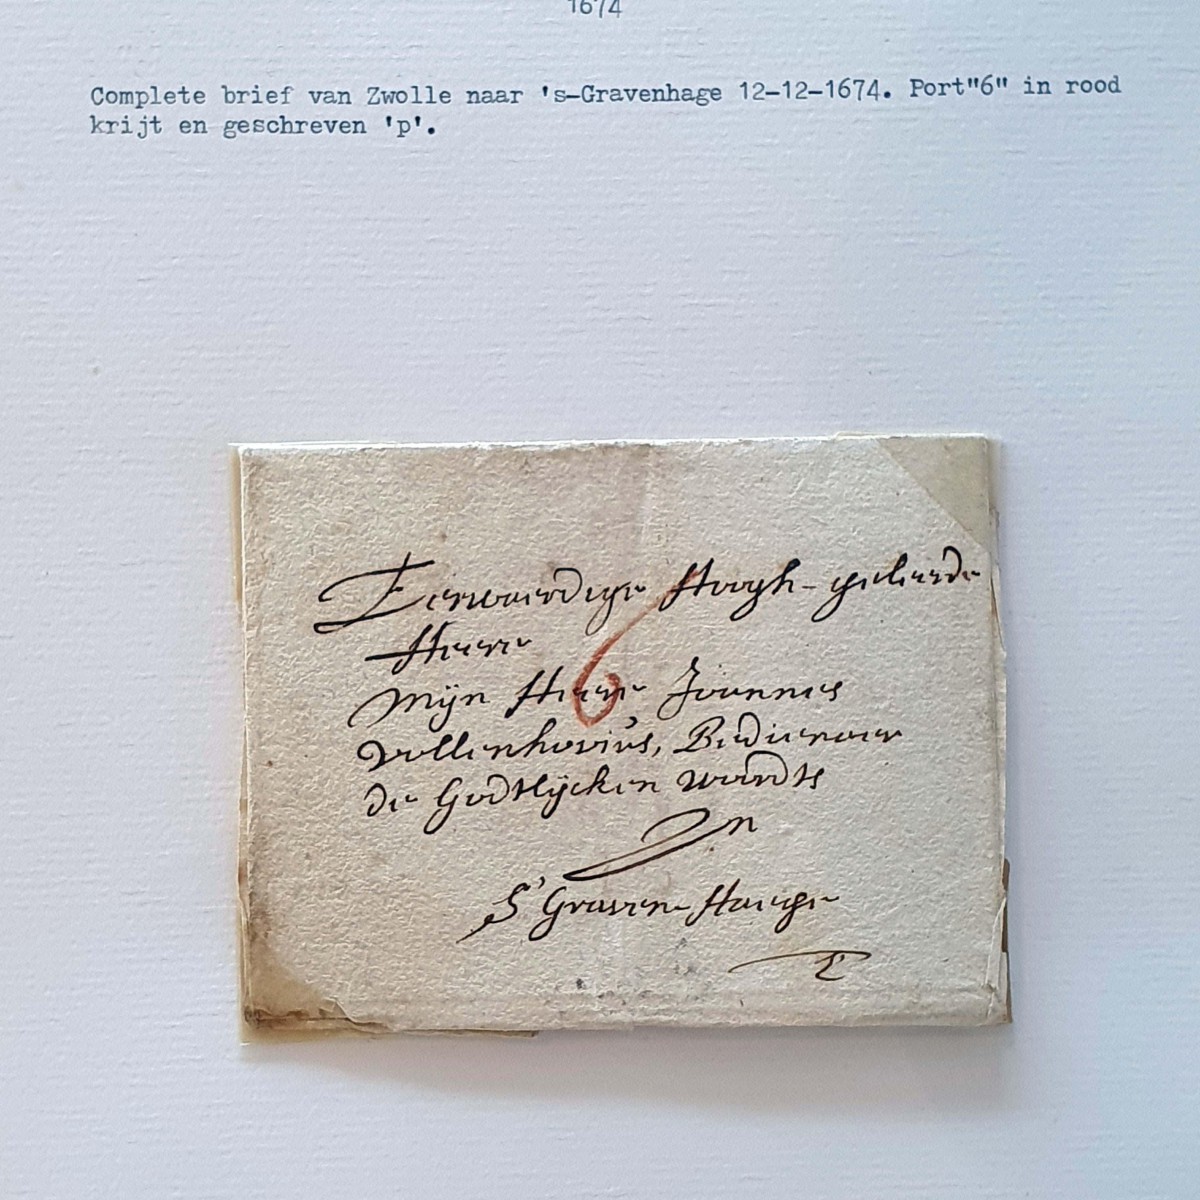 1674
Complete brief van Zwolle naar 's-Gravenhage 12-12-1674. Port"6" in rood
krijt en geschreven 'p'.
Eerwaerdige Hoogh-geleerde
Heere
6
Mijn Heere Joannes
Vollenhovius, Bedienaer
de Godtlijcken woordts
In
S' Graven-Haege